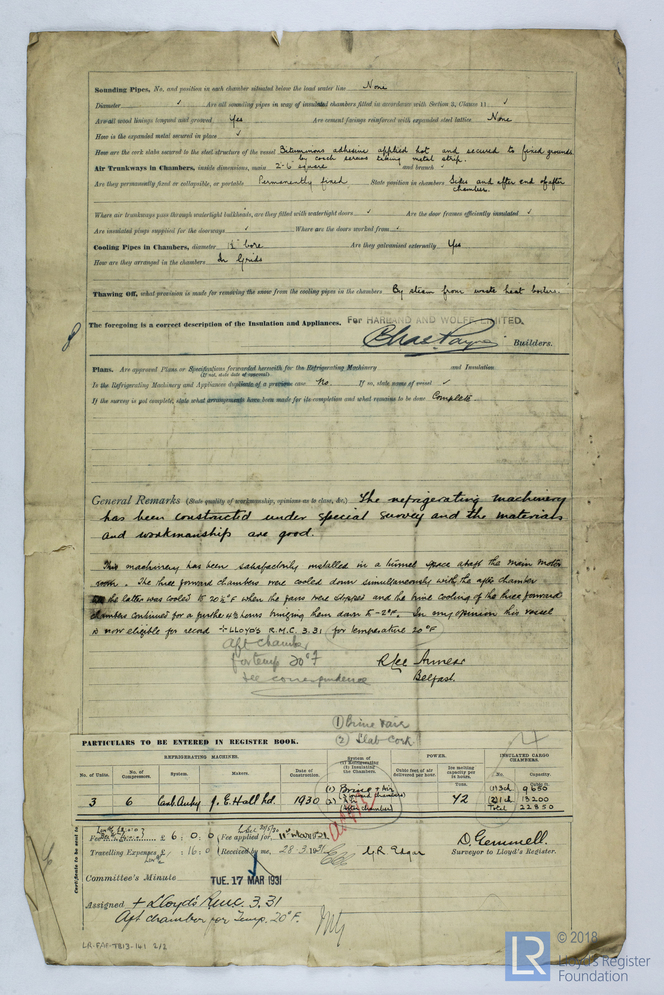 Sounding Pipes, No. and position in each chamber situated below the load water line None
Diameter ✓ Are all sounding pipes in way of insulated chambers fitted in accordance with Section 3, Clause 11 ✓
Are all wood linings tongued and grooved Yes Are cement facings reinforced with expanded steel lattice None
How is the expanded metal secured in place ✓
How are the cork slabs secured to the steel structure of the vessel Bituminous adhesive applied hot and secured to fixed grounds
by coach screws taking metal strip.
Air Trunkways in Chambers, inside dimensions, main 2'-6" square and branch ✓
Are they permanently fixed or collapsible, or portable Permanently fixed State position in chambers Sides and after end of after
chamber.
Where air trunkways pass through watertight bulkheads, are they fitted with watertight doors ✓ Are the door frames efficiently insulated ✓
Are insulated plugs supplied for the doorways ✓ Where are the doors worked from ✓
Cooling Pipes in Chambers, diameter 1½" bore Are they galvanised externally Yes
How are they arranged in the chambers In Grids
Thawing Off, what provision is made for removing the snow from the cooling pipes in the chambers By steam from waste heat boilers.
The foregoing is a correct description of the Insulation and Appliances. For HARLAND AND WOLFF LIMITED.
Chas. Payne Builders.
Plans. Are approved Plans or Specifications forwarded herewith for the Refrigerating Machinery and Insulation
(If not, state date of approval)
Is the Refrigerating Machinery and Appliances duplicate of a previous case No. If so, state name of vessel ✓
If the survey is not complete, state what arrangements have been made for its completion and what remains to be done Complete
General Remarks (State quality of workmanship, opinions as to class, &c.) The refrigerating machinery
has been constructed under special survey and the materials
and workmanship are good.
This machinery has been satisfactorily installed in a tunnel space abaft the main motor
room. The three forward chambers were cooled down simultaneously with the after chamber
the latter was cooled to 20½°F when the fans were stopped and the brine cooling of the three forward
chambers continued for a further 4½ hours bringing them down to -2°F. In my opinion this vessel
is now eligible for record + LLOYD'S R.M.C. 3.31 for temperature 20°F
Aft chamber
for temp 20°F
see correspondence
R Lee Amess
Belfast.
(1) Brine & air
(2) Slab Cork.
PARTICULARS TO BE ENTERED IN REGISTER BOOK.
REFRIGERATING MACHINERY. System of (1) Refrigerating (2) Insulating the Chambers. POWER. INSULATED CARGO CHAMBERS.
No. of Units. No. of Compressors. System. Makers. Date of Construction. Cubic feet of air delivered per hour. Ice melting capacity per 24 hours. No. Capacity.
Tons.
3 6 Carb. Anhy J. & E. Hall Ld. 1930 (1) Brine & Air 42 (1) 3ch 9650
(2) 1ch 13200
Total 22850
Fee £ 6 : 0 : 0 Fee applied for,
Travelling Expenses £ : 16 : 0 Received by me, 28-3-1931 G R Edgar
D. Gemmell.
Surveyor to Lloyd's Register.
Certificate to be sent to
Committee's Minute TUE. 17 MAR 1931
Assigned + Lloyd's R.M.C. 3.31
Aft chamber for Temp. 20°F.
LR-FAF-TB13-141 2/2
LR © 2018
Lloyd's Register
Foundation